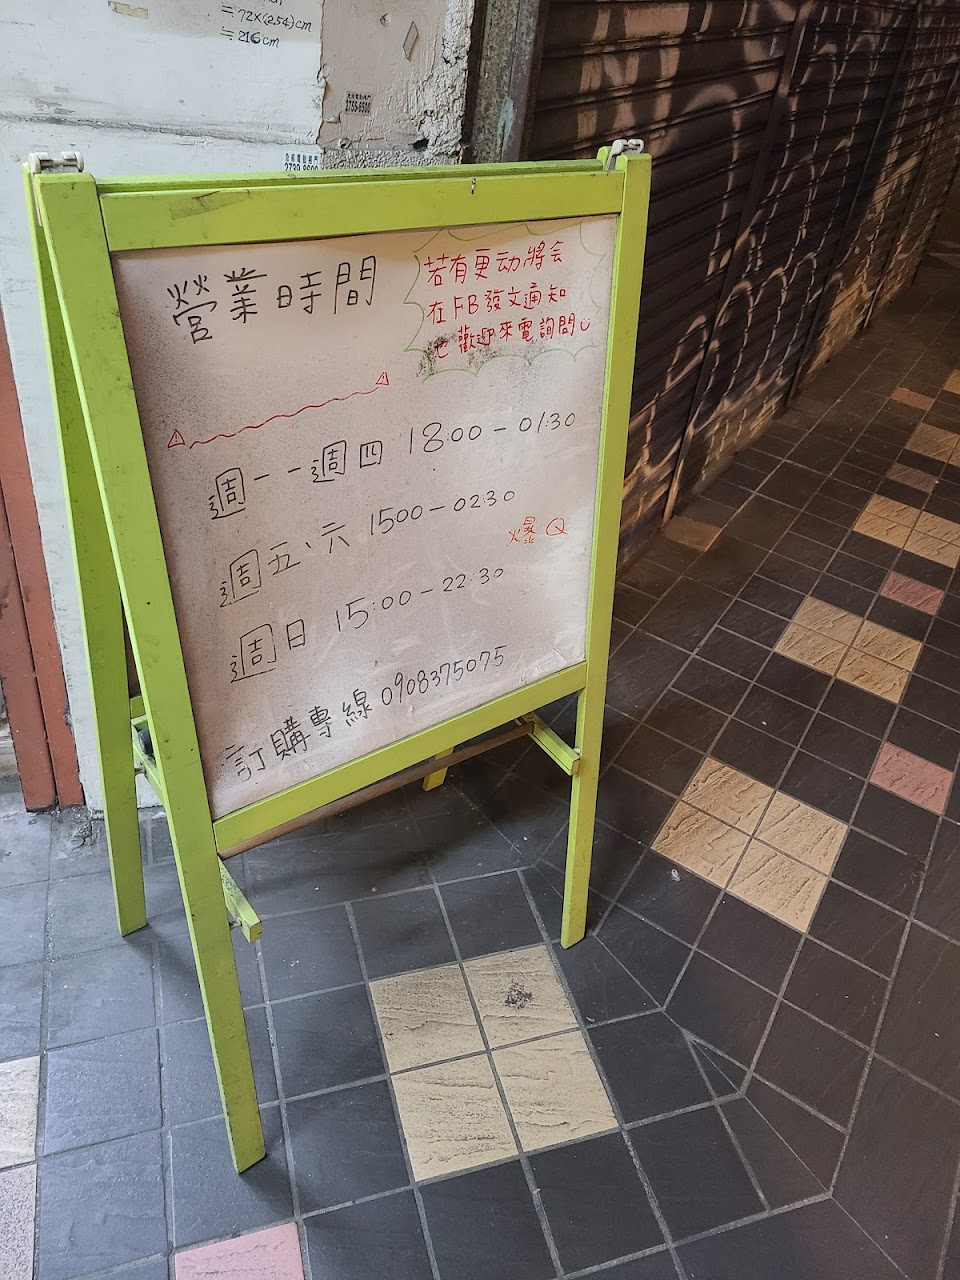 ≒72×(2.54)cm
≒216cm
2755-6500
營業時間
若有更动將会
在FB發文通知
也歡迎來電詢問
週一-週四 18:00-01:30
週五、六 1500-02:30
爆Q
週日 15:00-22:30
訂購專線 0908375075